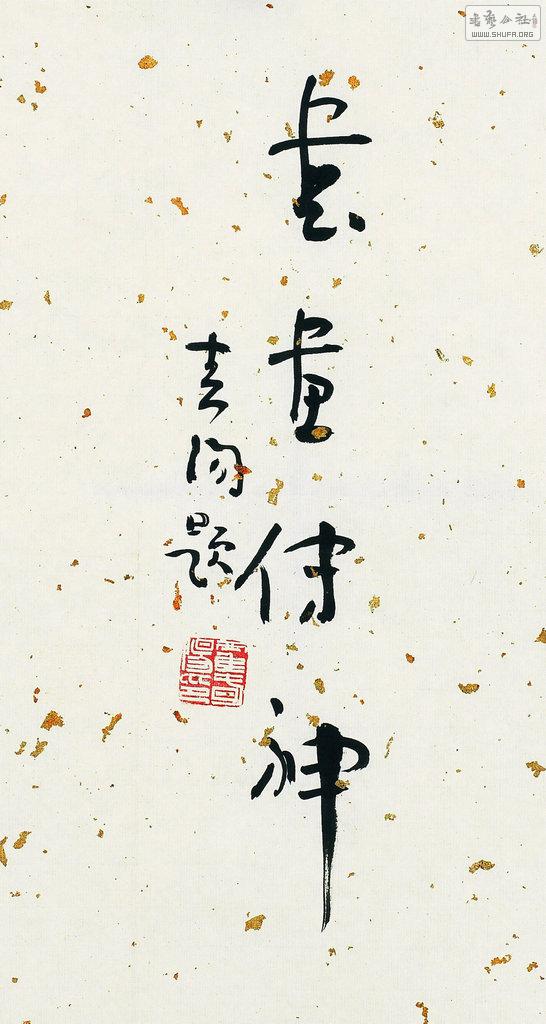 書畫傳神
春陽題
書藝公社
WWW.SHUFA.ORG